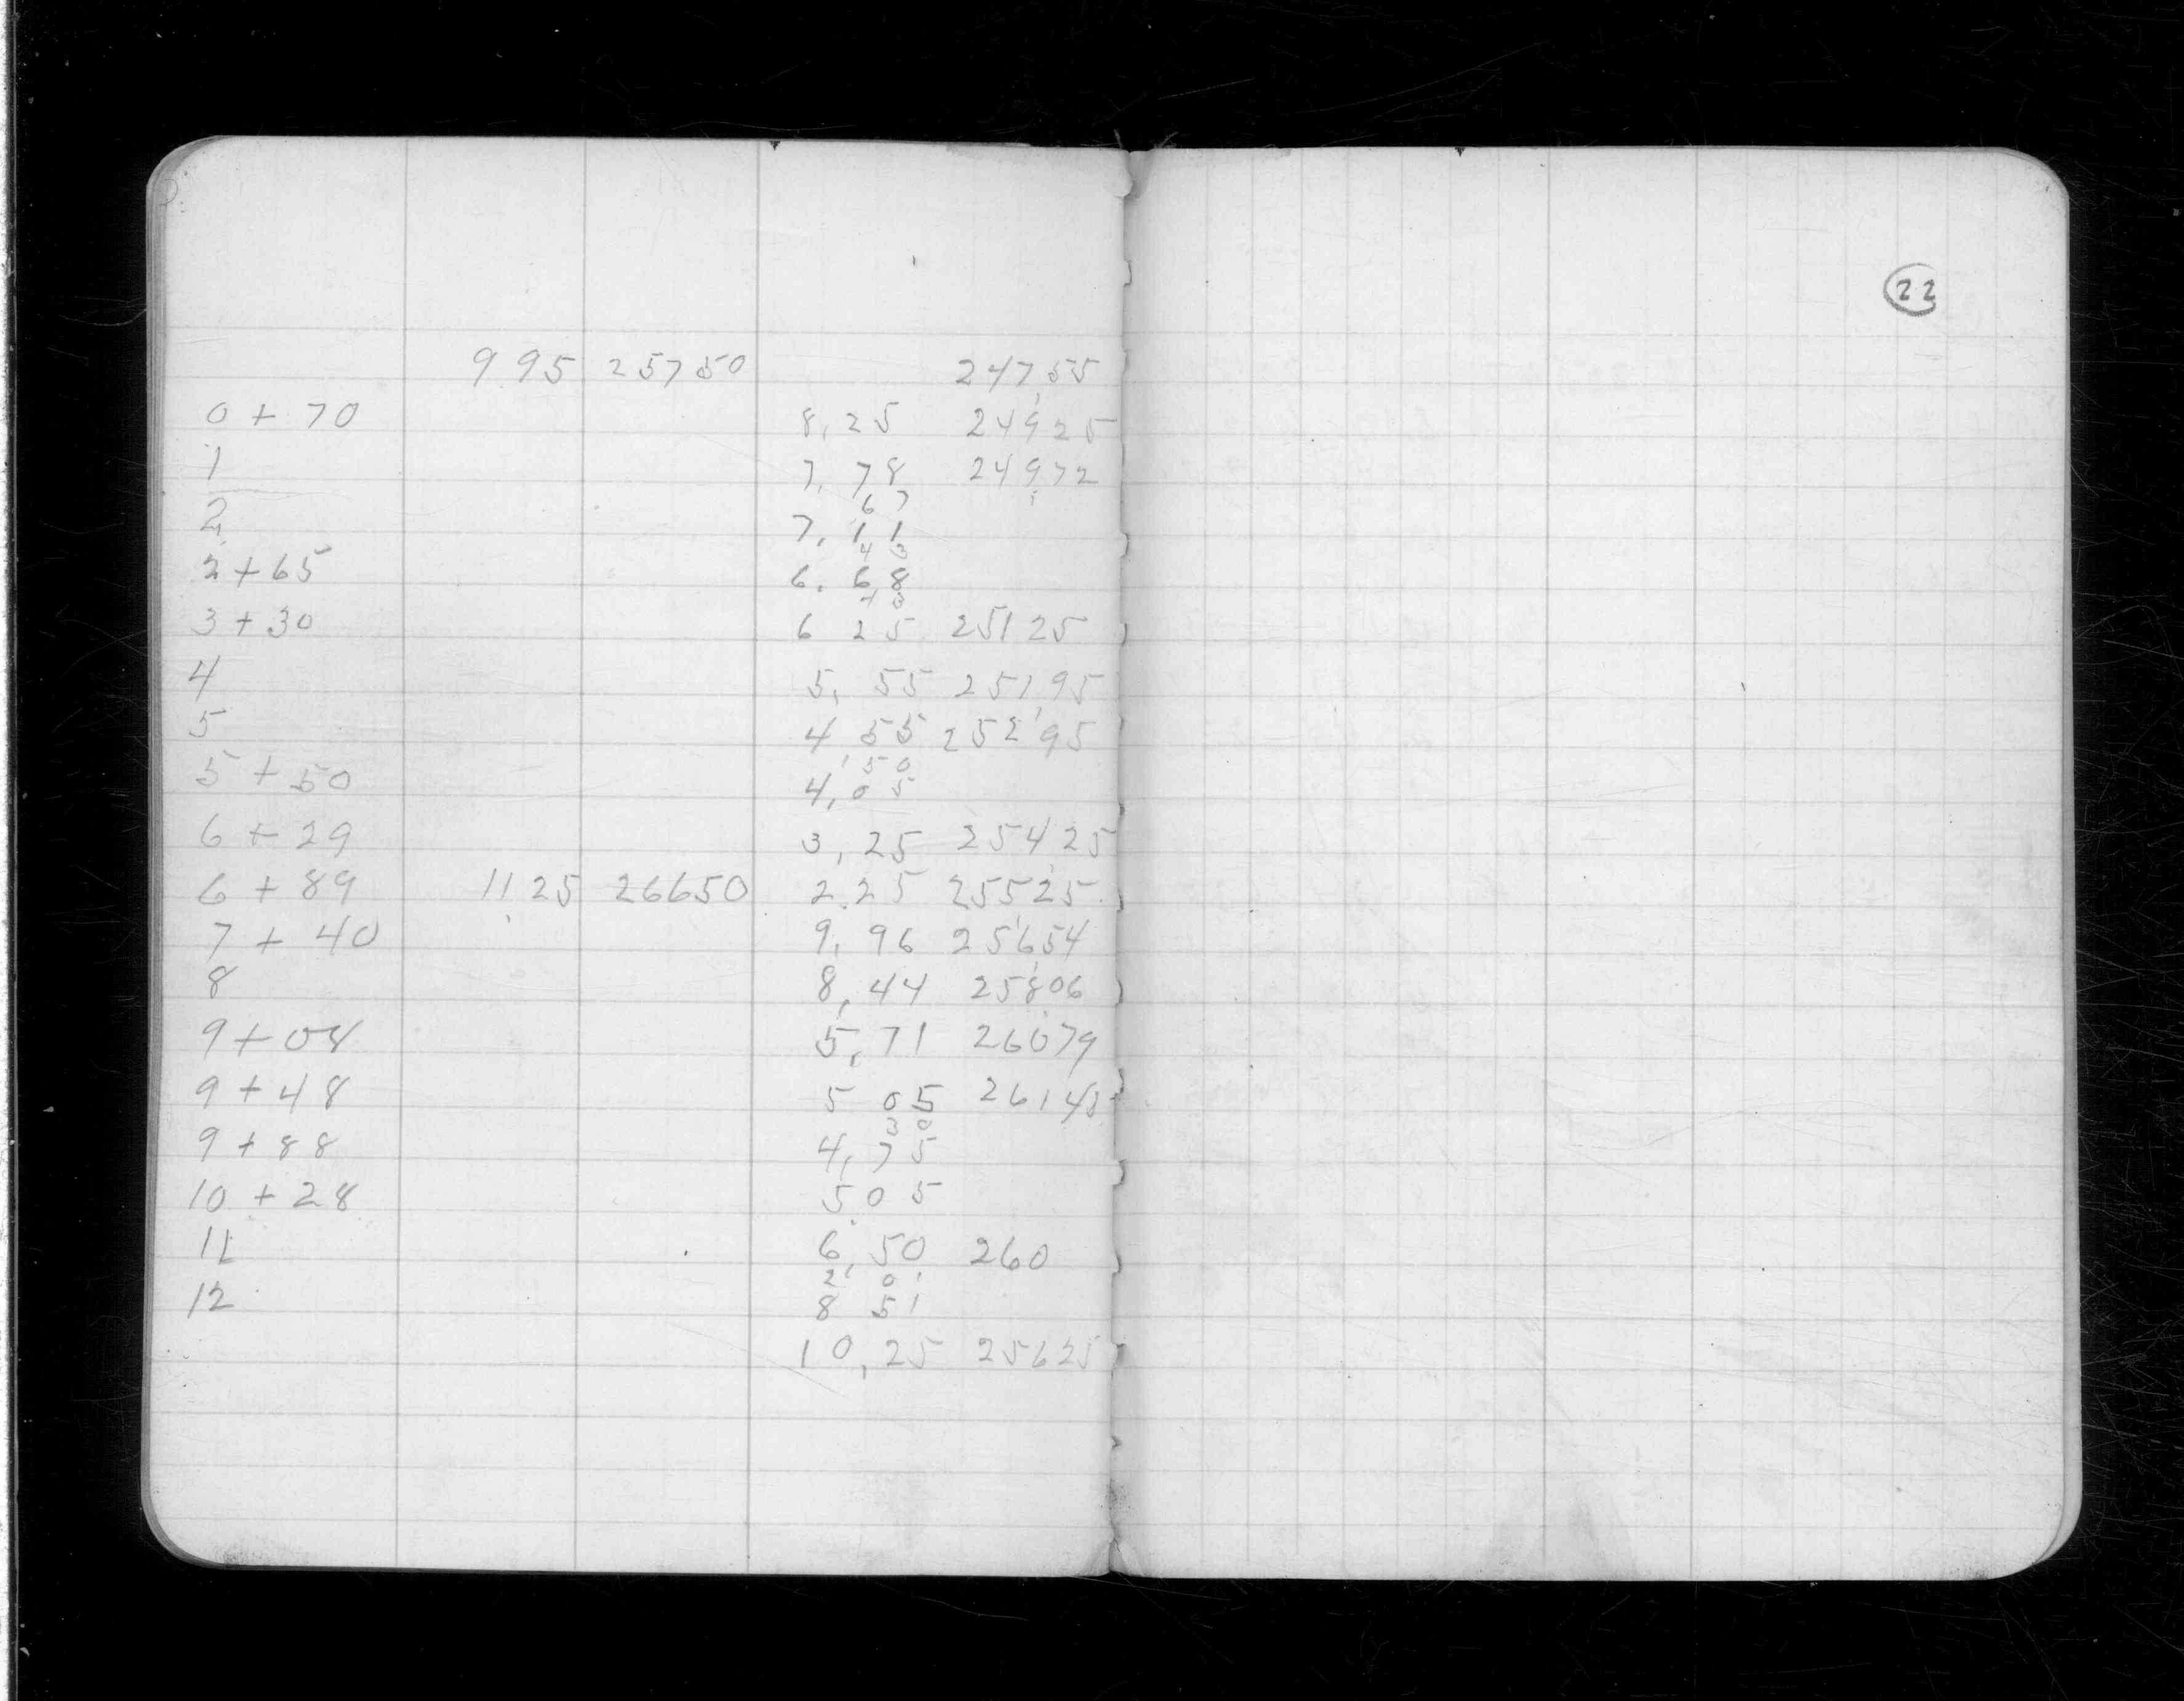 9 95 25750 247,55
0 + 70 8,25 24925
1 7,78 24972
67
2 7,11
43
2 + 65 6.68
43
3 + 30 6 25 25125
4 5,55 25195
5 4,55 25295
50
5 + 50 4,05
6 + 29 3,25 25425
6 + 89 11 25 26650 2.25 25525
7 + 40 9,96 25654
8 8,44 25806
9 + 08 5,71 26079
9 + 48 5 05 26145
30
9 + 88 4,75
10 + 28 5 05
11 6,50 260
2 01
12 8 51
10,25 25625
22